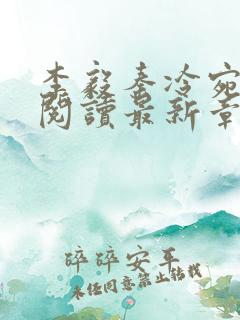 李毅秦冷宛
阅讀最新章
碎碎安平
未经同意禁止转载